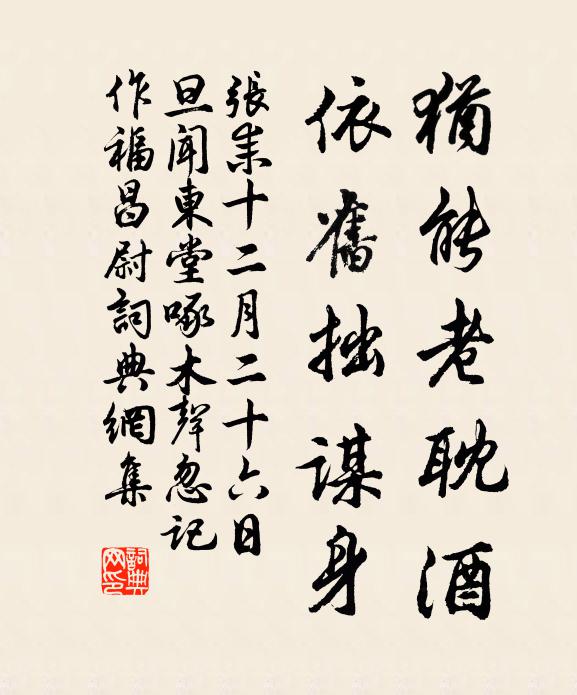 猶能老耽酒
依舊拙謀身
張耒十二月二十六日
旦聞東堂啄木聲忽記
作福昌尉詞典網集
詞典网印